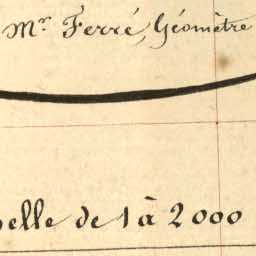 Mr. Ferré, Géomètre
elle de 1 à 2000